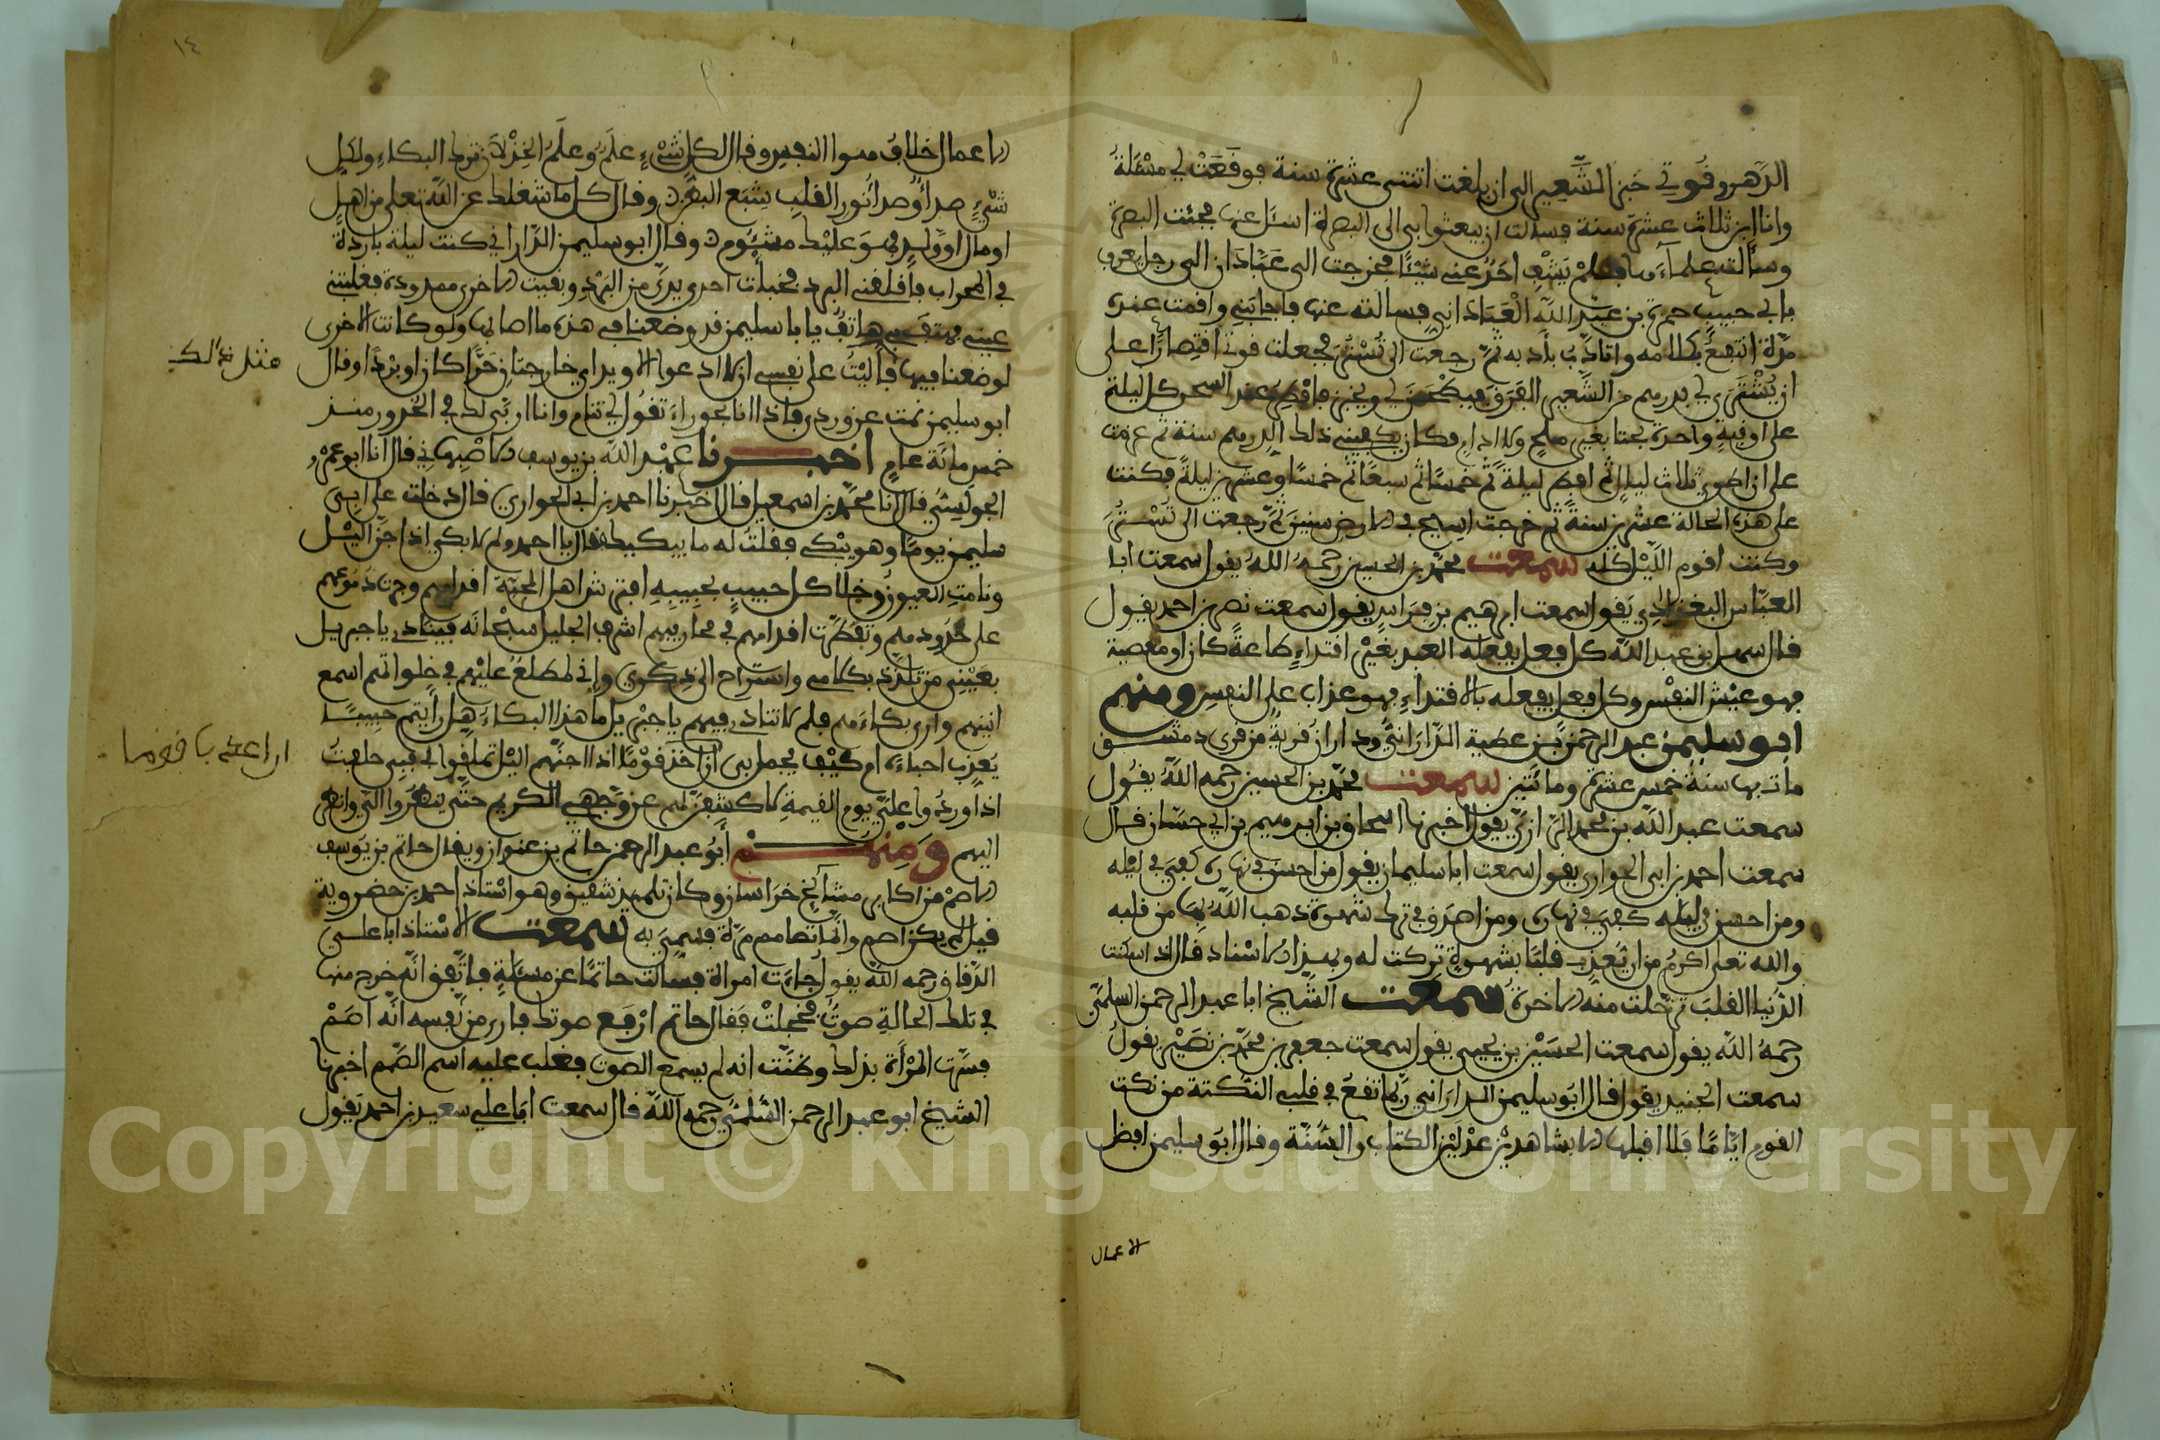 الدهر وقوتي خبز الشعير الى ان بلغت اثنتي عشرة سنة فوقعت لي مسئلة
وانا ابن ثلاث عشرة سنة فسالت ان يبعثوا بي الى البصرة اسئل عنها فجئت البصرة
وسالت علماءها فلم يشف احد عني شيئا فخرجت الى عبادان الى رجل يعرف
بابي حبيب حمزة بن عبد الله العباداني فسالته عنها فاجابني واقمت عنده
مدة انتفع بكلامه واتادب بادبه ثم رجعت الى تستر فجعلت قوتي اقتصارا على
ان يشترى لي بدرهم من الشعير الفرق فيطحن لي ويخبز فافطر عند السحر كل ليلة
على اوقية واحدة بحتا بغير ملح ولا ادام فكان يكفيني ذلك الدرهم سنة ثم عزمت
على ان اطوي ثلاث ليال ثم افطر ليلة ثم خمسا ثم سبعا ثم خمسا وعشرين ليلة فكنت
على هذه الحالة عشرين سنة ثم خرجت اسيح في الارض سنين ثم رجعت الى تستر
وكنت اقوم الليل كله سمعت محمد بن الحسين رحمه الله يقول سمعت ابا
العباس البغدادي يقول سمعت ابرهيم بن فراس يقول سمعت نصر بن احمد يقول
قال سهل بن عبد الله كل فعل يفعله العبد بغير اقتداء طاعة كان او معصية
فهو عيش النفس وكل فعل يفعله بالاقتداء فهو عذاب على النفس ومنهم
ابو سليمن عبد الرحمن بن عطية الداراني وداران قرية من قرى دمشق
مات بها سنة خمس عشرة ومائتين سمعت محمد بن الحسين رحمه الله يقول
سمعت عبد الله بن محمد الرازي يقول اخبرنا اسحاق بن ابرهيم بن ابي حسان قال
سمعت احمد بن ابي الحواري يقول سمعت ابا سليمان يقول من احسن في نهاره كفي في ليله
ومن احسن في ليله كفي في نهاره ومن صدق في ترك شهوة ذهب الله بها من قلبه
والله تعلى اكرم من ان يعذب قلبا بشهوة تركت له وبهذا الاسناد قال اذا سكنت
الدنيا القلب ترحلت منه الاخرة سمعت الشيخ ابا عبد الرحمن السلمي
رحمه الله يقول سمعت الحسين بن يحيى يقول سمعت جعفر بن محمد بن نصير يقول
سمعت الجنيد يقول قال ابو سليمن الداراني ربما تقع في قلبي النكتة من نكت
القوم اياما فلا اقبلها الا بشاهدين عدلين الكتاب والسنة وقال ابو سليمن افضل
الاعمال
١٤
الاعمال خلاف هوا النفس وقال لكل شيء علم وعلم الخذلان ترك البكاء ولكل
شيء صدأ وصدأ نور القلب شبع البطن وقال كل ما شغلك عن الله تعلى من اهل
او مال او ولد فهو عليك مشؤوم وقال ابو سليمن الداراني كنت ليلة باردة
في المحراب فاقلقني البرد فخبأت احدى يدي من البرد وبقيت الاخرى ممدودة فغلبتني
عيني فهتف بي هاتف يا با سليمن قد وضعنا في هذه ما اصابها ولو كانت الاخرى
لوضعنا فيها فأليت على نفسي ان لا ادعوا الا ويداي خارجتان حرا كان او بردا وقال
ابو سليمن نمت عن وردي فاذا انا بحوراء تقول لي تنام وانا اربى لك في الخدور منذ
خمس مائة عام اخبرنا عبد الله بن يوسف الاصبهاني قال انا ابو عمرو
الجولستي قال انا محمد بن اسمعيل قال اخبرنا احمد بن ابي الحواري قال دخلت على ابي
سليمن يوما وهو يبكي فقلت له ما يبكيك فقال يا احمد ولم لا ابكي اذا جن الليل
ونامت العيون وخلا كل حبيب بحبيبه افترش اهل المحبة اقدامهم وجرت دموعهم
على خدودهم وتقطرت اقدامهم في محاريبهم اشرف الجليل سبحانه فينادي يا جبريل
بعيني من تلذذ بكلامي واستراح الى ذكري واني لمطلع عليهم في خلواتهم اسمع
انينهم وارى بكاءهم فلم لا تنادي فيهم يا جبريل ما هذا البكاء هل رايتم حبيبا
يعذب احباءه ام كيف يجمل بي ان اخذ قوما اذا جنهم الليل تملقوا لي فبي حلفت
اذا وردوا علي يوم القيمة لاكشفن لهم عن وجهي الكريم حتى ينظروا الي وانظر
اليهم ومنهم أبو عبد الرحمن حاتم بن عنوان ويقال حاتم بن يوسف
الاصم من اكابر مشائخ خراسان وكان تلميذ شقيق وهو استاذ احمد بن خضروية
قيل لم يكن اصم وانما تصامم مرة فسمي به سمعت الاستاذ ابا علي
الدقاق رحمه الله يقول جاءت امراة فسالت حاتما عن مسئلة فاتفق انه خرج منها
في تلك الحالة صوت فخجلت فقال حاتم ارفع صوتك فارى من نفسه انه اصم
فسرت المرأة بذلك وظنت انه لم يسمع الصوت فغلب عليه اسم الصمم اخبرنا
الشيخ ابو عبد الرحمن السلمي رحمه الله قال سمعت ابا علي سعيد بن احمد يقول
مثل ذالك
ان اعذب قوما
Copyright © King Saud University